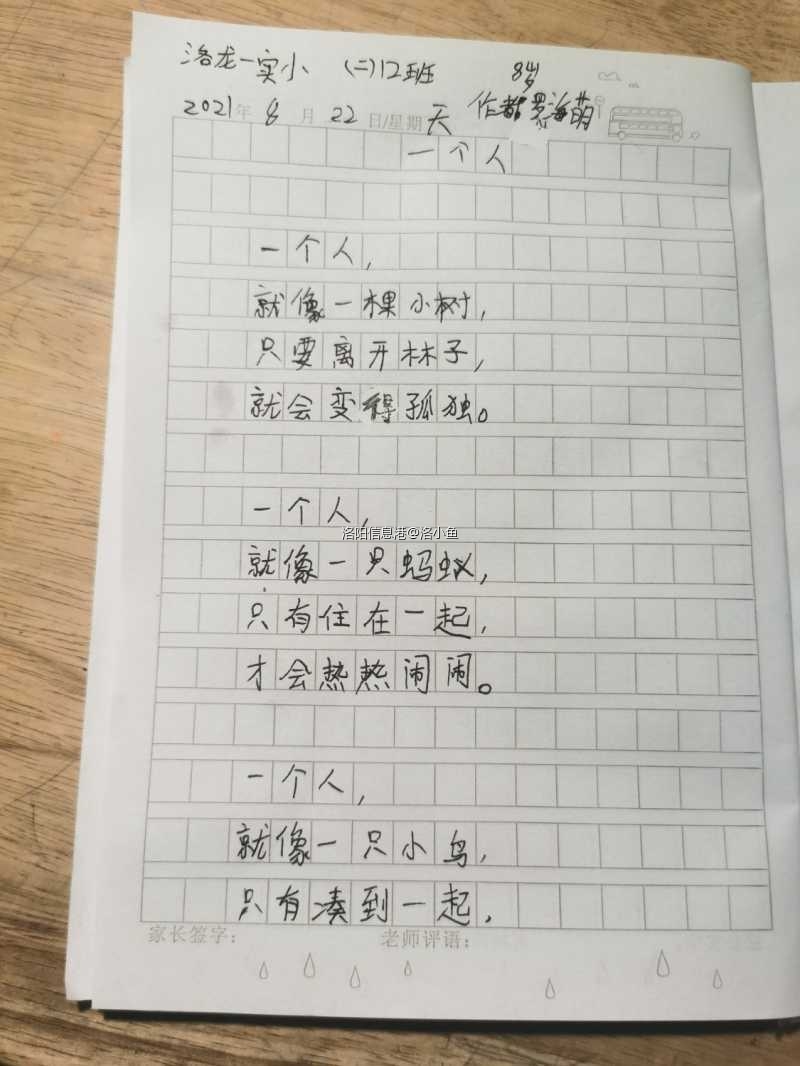 洛龙一实小 (二)12班 8岁
2021年 8月 22日/星期天 作者罗海萌
一个人
一个人,
就像一棵小树,
只要离开林子,
就会变得孤独。
一个人,
洛阳信息港@洛小鱼
就像一只蚂蚁,
只有住在一起,
才会热热闹闹。
一个人,
就像一只小鸟,
只有凑到一起,
家长签字: 老师评语: